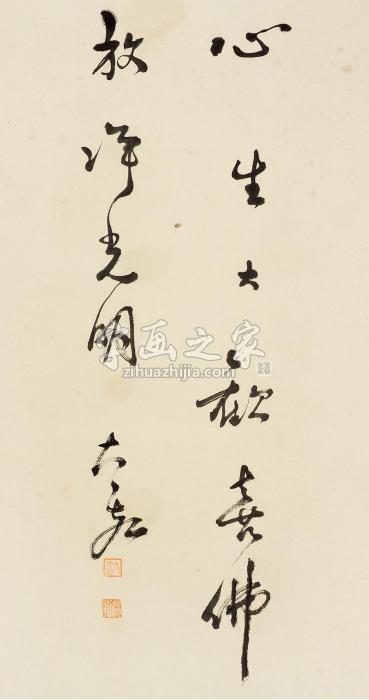 心生大歡喜佛
放淨光明
太虛
字画之家
zihuazhijia.com